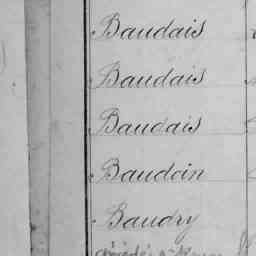 Baudais
Baudais
Baudais
Baudoin
Baudry